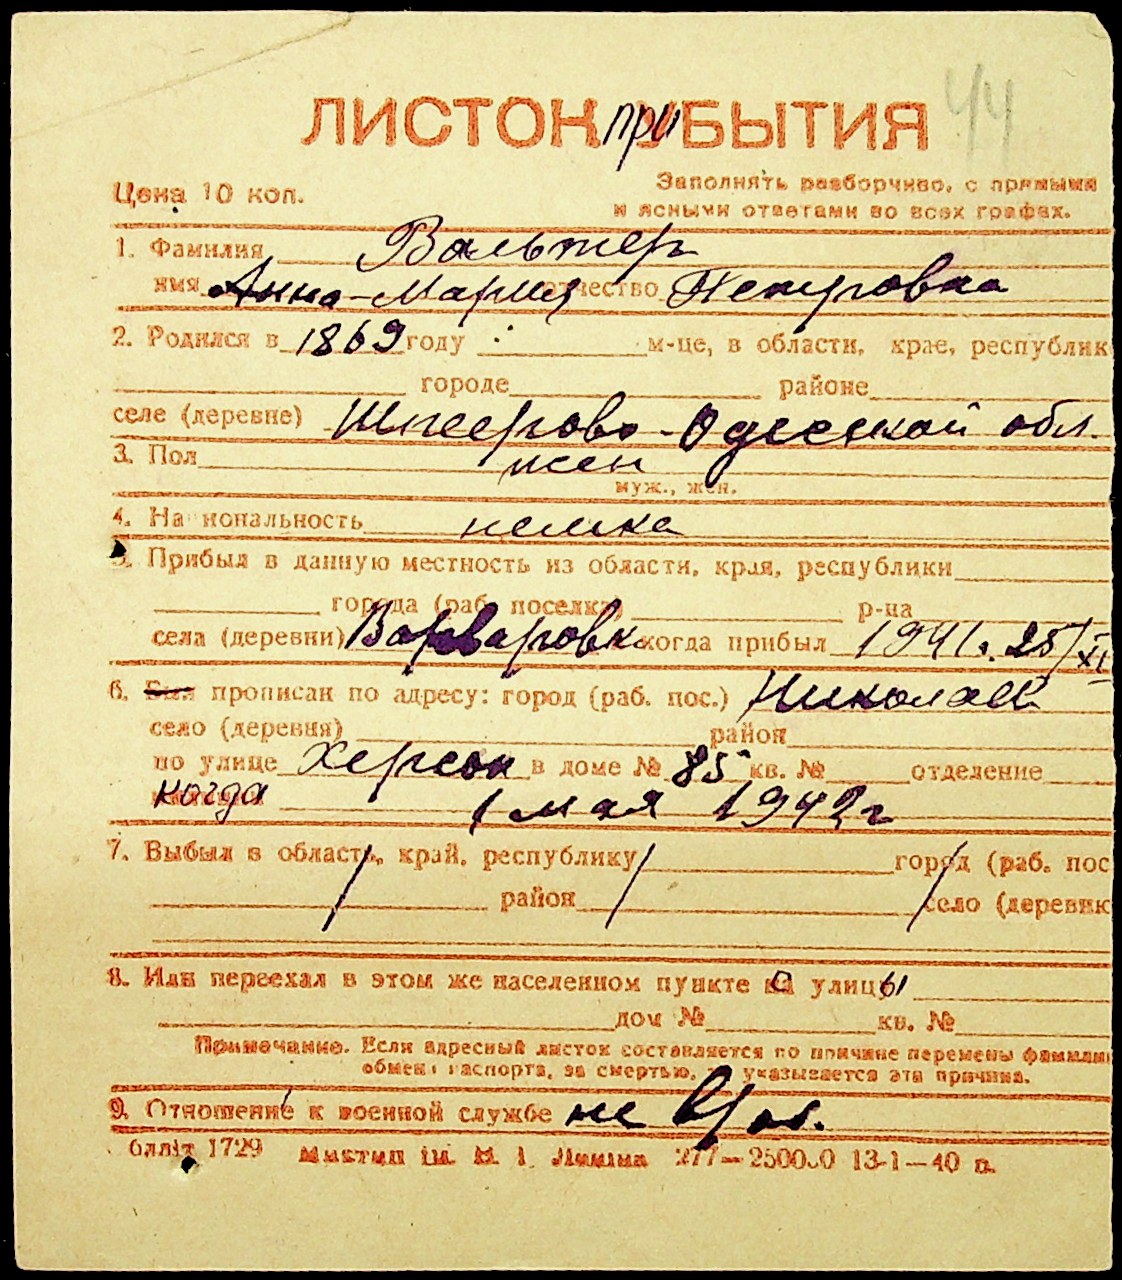 ЛИСТОК ПРИБЫТИЯ 44
Цена 10 коп.
Заполнять разборчиво, с прямыми
и ясными ответами во всех графах.
1. Фамилия Вальтер
имя Анна-Мария отчество Петровна
2. Родился в 1869 году м-це, в области, крае, республик
городе районе
селе (деревне) Шпеерово-Одесской обл.
3. Пол жен
муж., жен.
4. Национальность немка
5. Прибыл в данную местность из области, края, республики
города (раб. поселка) р-на
села (деревни) Варваровка когда прибыл 1941. 25/XII
6. Был прописан по адресу: город (раб. пос.) Николаев
село (деревня) район
по улице Херсон в доме № 85 кв. № отделение
когда 1 мая 1942 г
7. Выбыл в область, край, республику город (раб. пос
район село (деревню
8. Или переехал в этом же населенном пункте с улицы
дом № кв. №
Примечание. Если адресный листок составляется по причине перемены фамилии
обмен паспорта, за смертью, указывается эта причина.
9. Отношение к военной службе не в/об.
блліт 1729 277—250000 13-1—40 р.